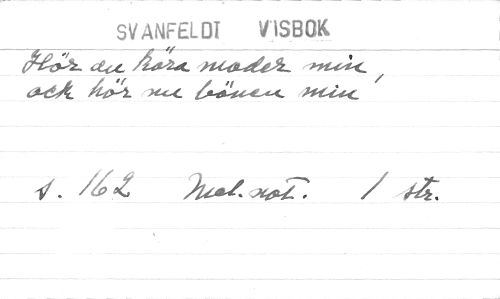 SVANFELDT VISBOK
Hör du kära moder min,
ock hör nu bönen min
s. 162 Mel. not. 1 str.